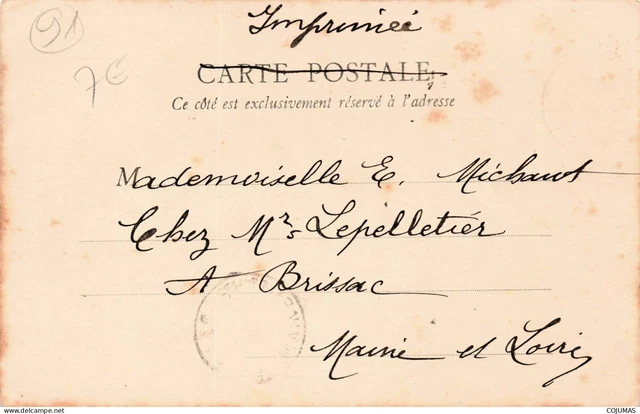 91
Imprimée
7€
CARTE POSTALE
Ce côté est exclusivement réservé à l'adresse
Mademoiselle E. Michaut
Chez Mrs Lepelletier
A Brissac
Maine et Loire
delcampe.net
COJUMAS